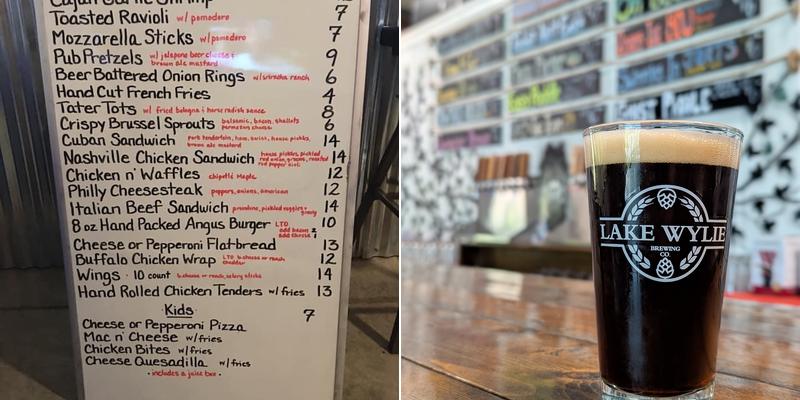 Cajun Garlic Shrimp
Toasted Ravioli w/ pomodoro 7
Mozzarella Sticks w/ pomodoro 7
Pub Pretzels w/ jalapeno beer cheese & brown ale mustard 9
Beer Battered Onion Rings w/ sriracha ranch 6
Hand Cut French Fries 4
Tater Tots w/ fried bologna & horse radish sauce 8
Crispy Brussel Sprouts balsamic, bacon, shallots parmesan cheese 6
Cuban Sandwich pork tenderloin, ham, swiss, house pickles, brown ale mustard 14
Nashville Chicken Sandwich house pickles, pickled red onion, greens, roasted red pepper aioli 14
Chicken n' Waffles chipotle maple 12
Philly Cheesesteak peppers, onions, american 12
Italian Beef Sandwich provolone, pickled veggies + gravy 14
8 oz Hand Packed Angus Burger LTO add bacon 2 add cheese 1 10
Cheese or Pepperoni Flatbread 13
Buffalo Chicken Wrap LTO b.cheese or ranch cheddar 12
Wings · 10 count b.cheese or ranch, celery sticks 14
Hand Rolled Chicken Tenders w/ fries 13
Kids 7
Cheese or Pepperoni Pizza
Mac n' Cheese w/ fries
Chicken Bites w/ fries
Cheese Quesadilla w/ fries
• includes a juice box •
LAKE WYLIE
BREWING
CO.